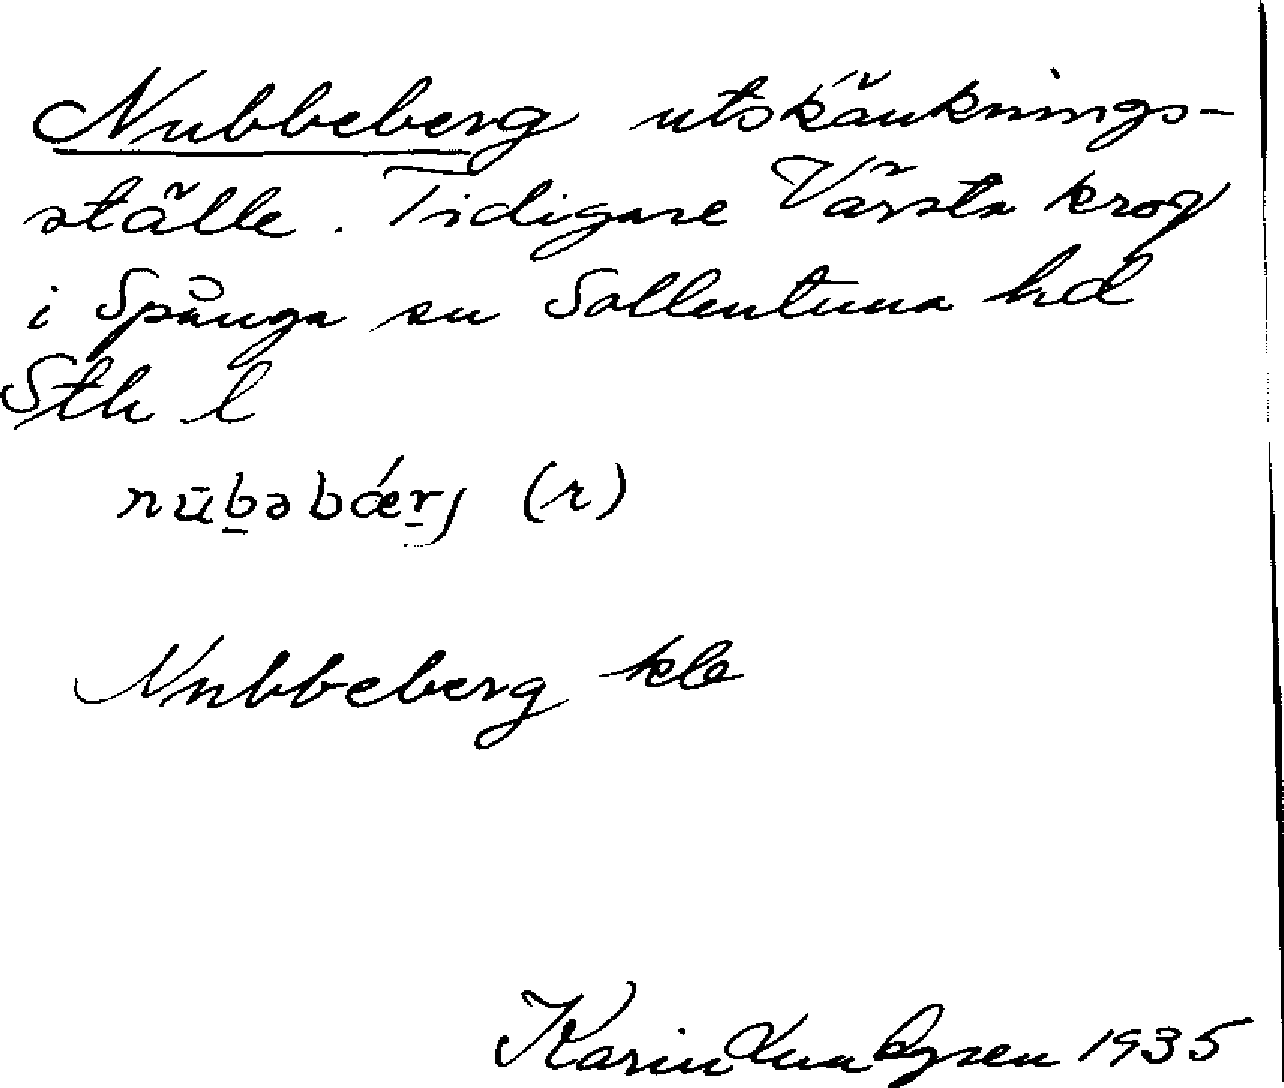 Nubbeberg utskänknings-
ställe. Tidigare Värsta krog
i Spånga sn Sollentuna hd
Sth l
nūb̲əbǽr̲j (r)
Nubbeberg kle
Karin Lundgren 1935